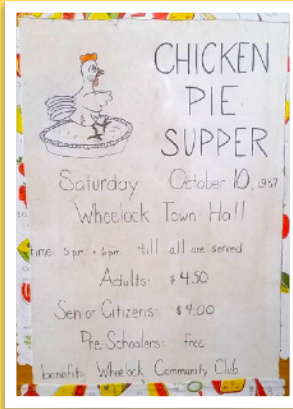 CHICKEN
PIE
SUPPER
Saturday October 10, 1987
Wheelock Town Hall
time: 5 pm + 6 pm till all are served
Adults: $4.50
Senior Citizens: $4.00
Pre-Schoolers: free
benefits Wheelock Community Club